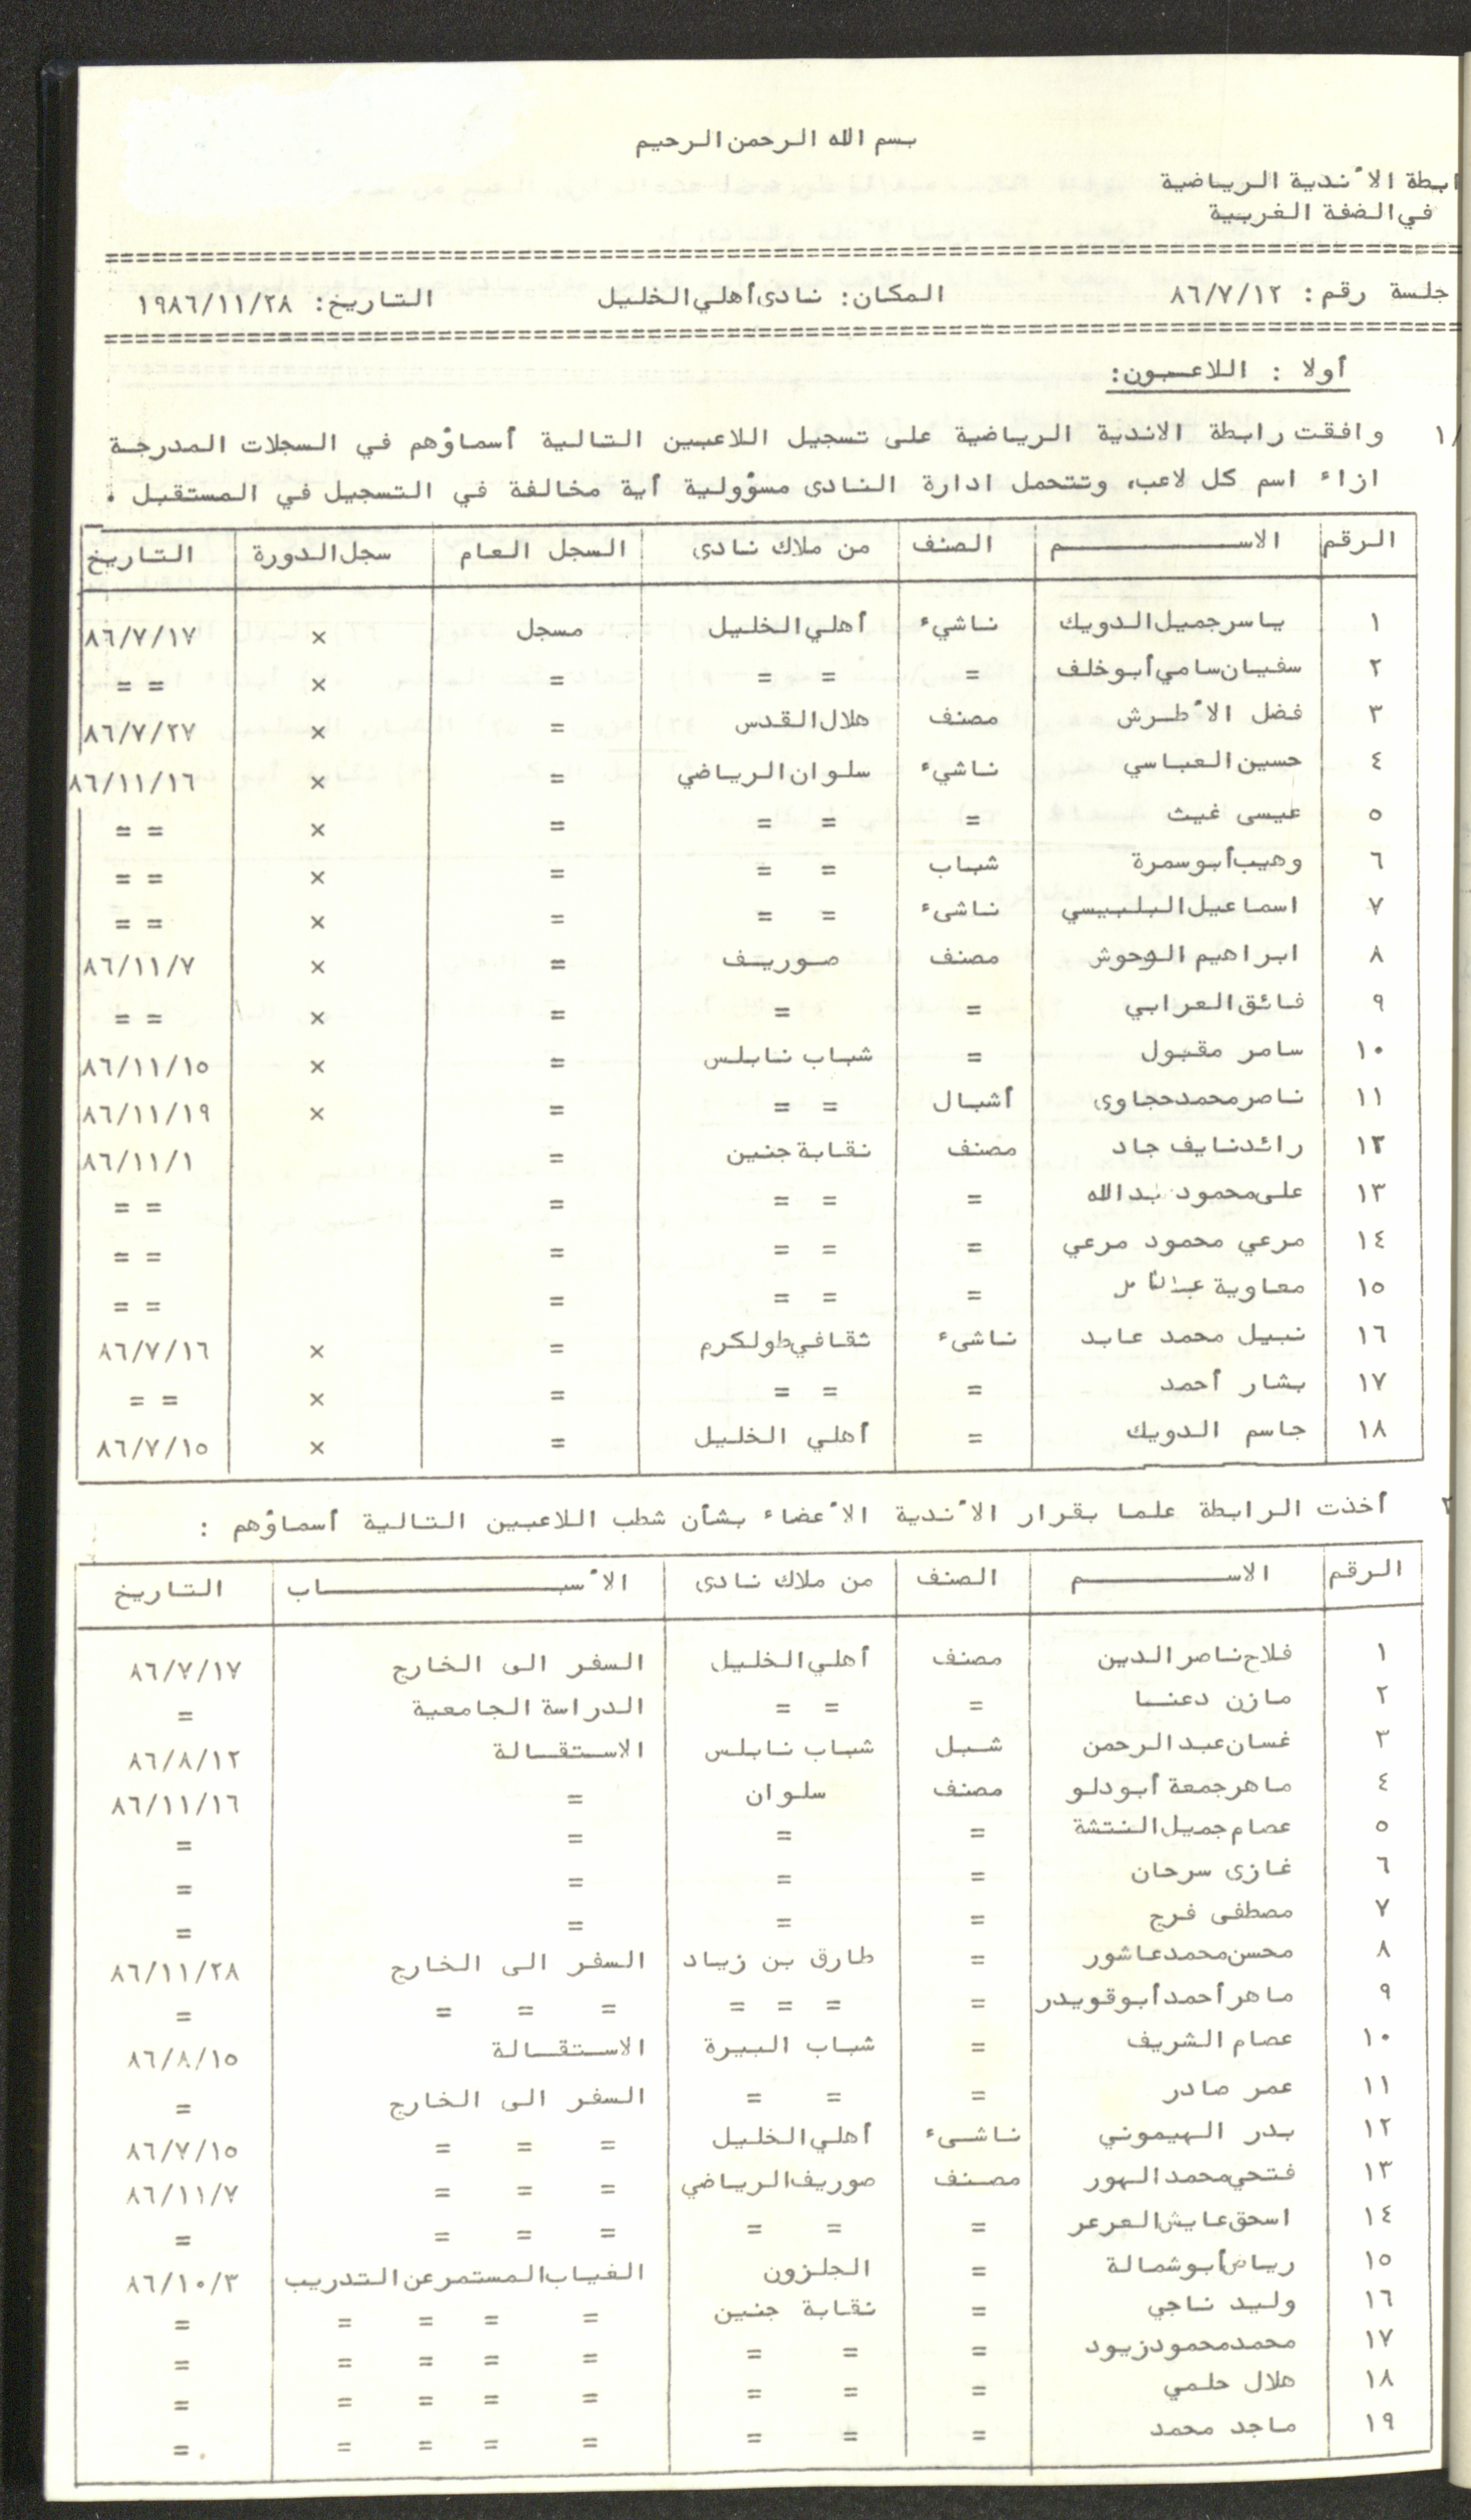 بسم الله الرحمن الرحيم
ابطة الأندية الرياضية
في الضفة الغربية
جلسة رقم: ٨٦/٧/١٢ المكان: نادى أهلي الخليل التاريخ: ١٩٨٦/١١/٢٨
أولا : اللاعبون:
١/ وافقت رابطة الاندية الرياضية على تسجيل اللاعبين التالية أسماؤهم في السجلات المدرجة
ازاء اسم كل لاعب، وتتحمل ادارة النادى مسؤولية أية مخالفة في التسجيل في المستقبل .
الرقم الاســـــم الصنف من ملاك نادى السجل العام سجل الدورة التاريخ
١ ياسر جميل الدويك ناشيء أهلي الخليل مسجل × ٨٦/٧/١٧
٢ سفيان سامي أبو خلف = = = = × = =
٣ فضل الأطرش مصنف هلال القدس = × ٨٦/٧/٢٧
٤ حسين العباسي ناشيء سلوان الرياضي = × ٨٦/١١/١٦
٥ عيسى غيث = = = = × = =
٦ وهيب أبو سمرة شباب = = = × = =
٧ اسماعيل البلبيسي ناشىء = = = × = =
٨ ابراهيم الوحوش مصنف صوريف = × ٨٦/١١/٧
٩ فائق العرابي = = = × = =
١٠ سامر مقبول = شباب نابلس = × ٨٦/١١/١٥
١١ ناصر محمد حجاوى أشبال = = = × ٨٦/١١/١٩
١٢ رائد نايف جاد مصنف نقابة جنين = ٨٦/١١/١
١٣ على محمود = = = = = =
١٤ مرعي محمود مرعي = = = = = =
١٥ معاوية = = = = = =
١٦ نبيل محمد عابد ناشىء ثقافي طولكرم = × ٨٦/٧/١٦
١٧ بشار أحمد = = = = × = =
١٨ جاسم الدويك = أهلي الخليل = × ٨٦/٧/١٥
٢ أخذت الرابطة علما بقرار الأندية الأعضاء بشأن شطب اللاعبين التالية أسماؤهم :
الرقم الاســـــم الصنف من ملاك نادى الأسبــــــاب التاريخ
١ فلاح ناصر الدين مصنف أهلي الخليل السفر الى الخارج ٨٦/٧/١٧
٢ مازن دعنا = = = الدراسة الجامعية =
٣ غسان عبد الرحمن شبل شباب نابلس الاستقالة ٨٦/٨/١٢
٤ ماهر جمعة أبو دلو مصنف سلوان = ٨٦/١١/١٦
٥ عصام جميل النتشة = = = =
٦ غازى سرحان = = = =
٧ مصطفى فرج = = = =
٨ محسن محمد عاشور = طارق بن زياد السفر الى الخارج ٨٦/١١/٢٨
٩ ماهر أحمد أبو قويدر = = = = = = = =
١٠ عصام الشريف = شباب البيرة الاستقالة ٨٦/٨/١٥
١١ عمر صادر = = = السفر الى الخارج =
١٢ بدر الهيموني ناشىء أهلي الخليل = = = ٨٦/٧/١٥
١٣ فتحي محمد الهور مصنف صوريف الرياضي = = = ٨٦/١١/٧
١٤ اسحق عايش العرعر = = = = = = =
١٥ رياض أبو شمالة = الجلزون الغياب المستمر عن التدريب ٨٦/١٠/٣
١٦ وليد ناجي = نقابة جنين = = = = =
١٧ محمد محمود زيود = = = = = = = =
١٨ هلال حلمي = = = = = = = =
١٩ ماجد محمد = = = = = = = =